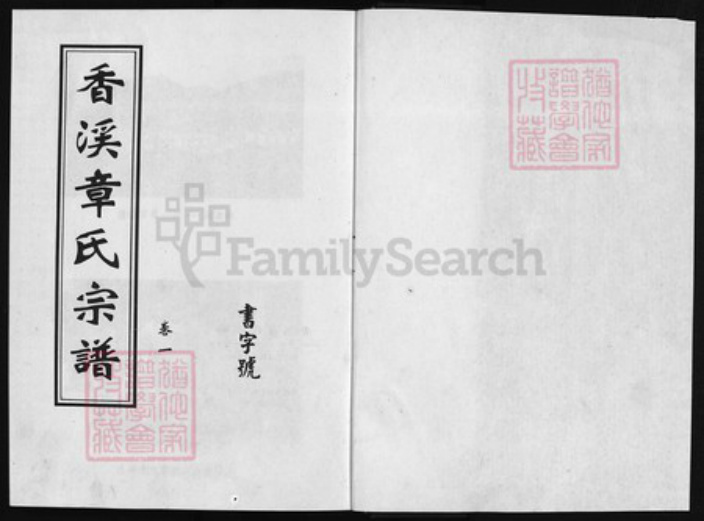 香溪章氏宗譜
卷一
書字號
猶他家
譜學會
收藏
FamilySearch
猶他家
譜學會
收藏